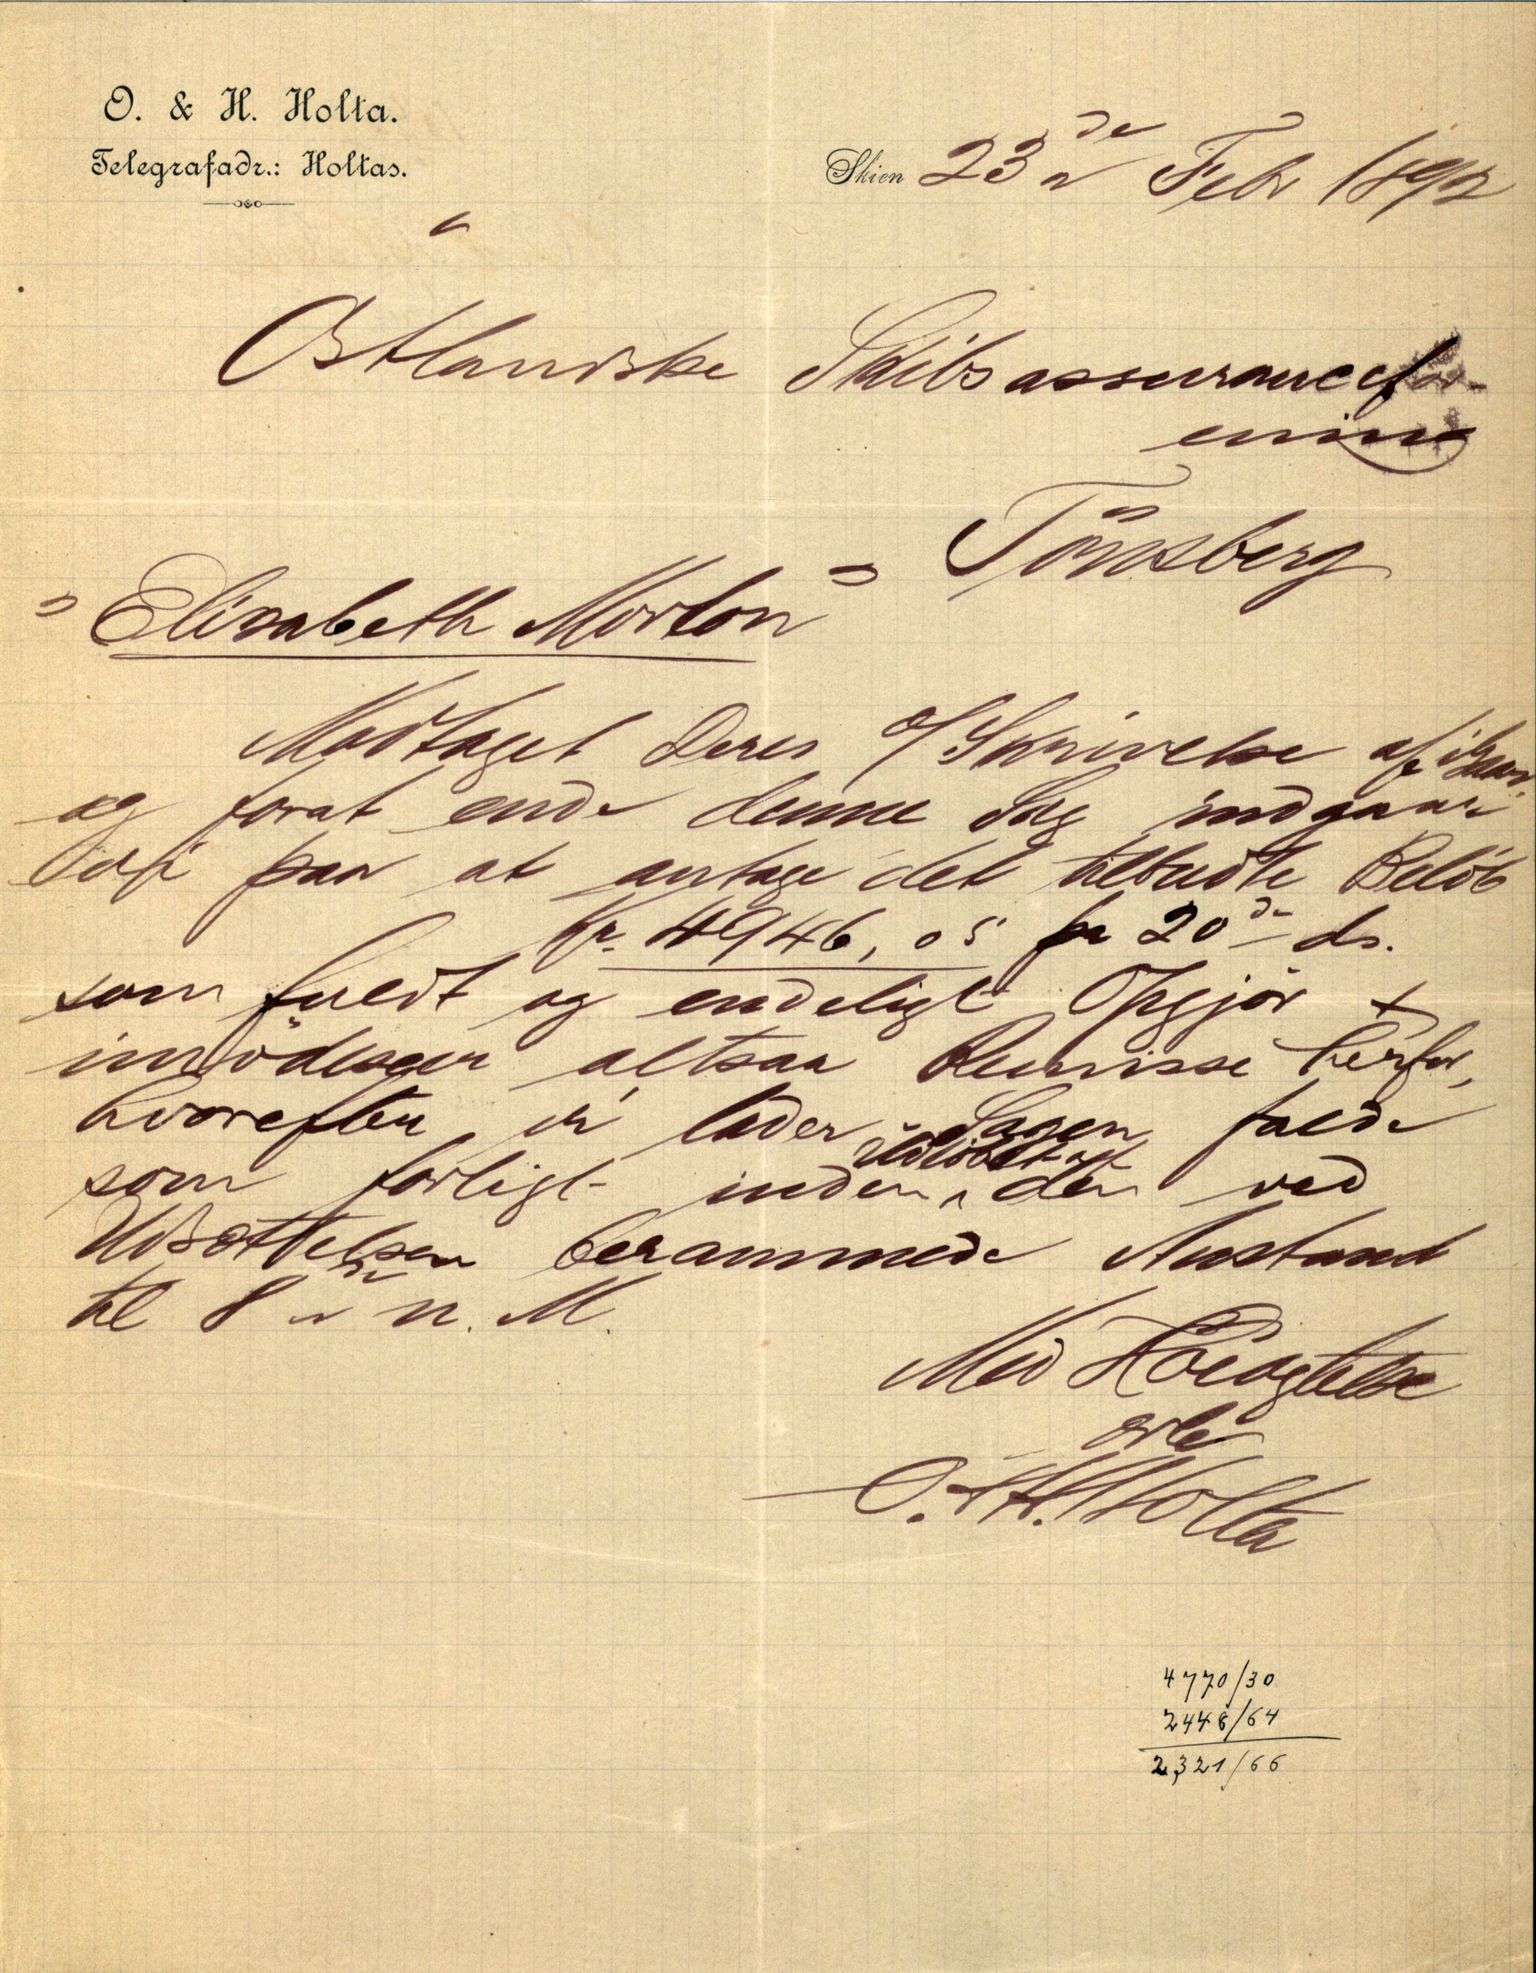 O. & H. Holta.
Telegrafadr.: Holtas.
Skien 23de Febr 1892
Östlandske Skibsassurancefor-
ening
Tönsberg
"Elisabeth Morton"
Modtaget Deres o/Skrivelse af igaar
og forat ende denne Sag indgaar
vi paa at antage det tilbudte Belöb
Kr. 4946,05 pr 20de ds.
som fuldt og endeligt Opgjör &
imödeser altsaa Remisse herfor,
hvorefter vi lader Sagen falde
som forligt inden Udlöbet af den ved
Udsættelsen berammede Anstand
til 8de n. M.
Med Höiagtelse
O. & H. Holta
4770/30
2448/64
2321/66